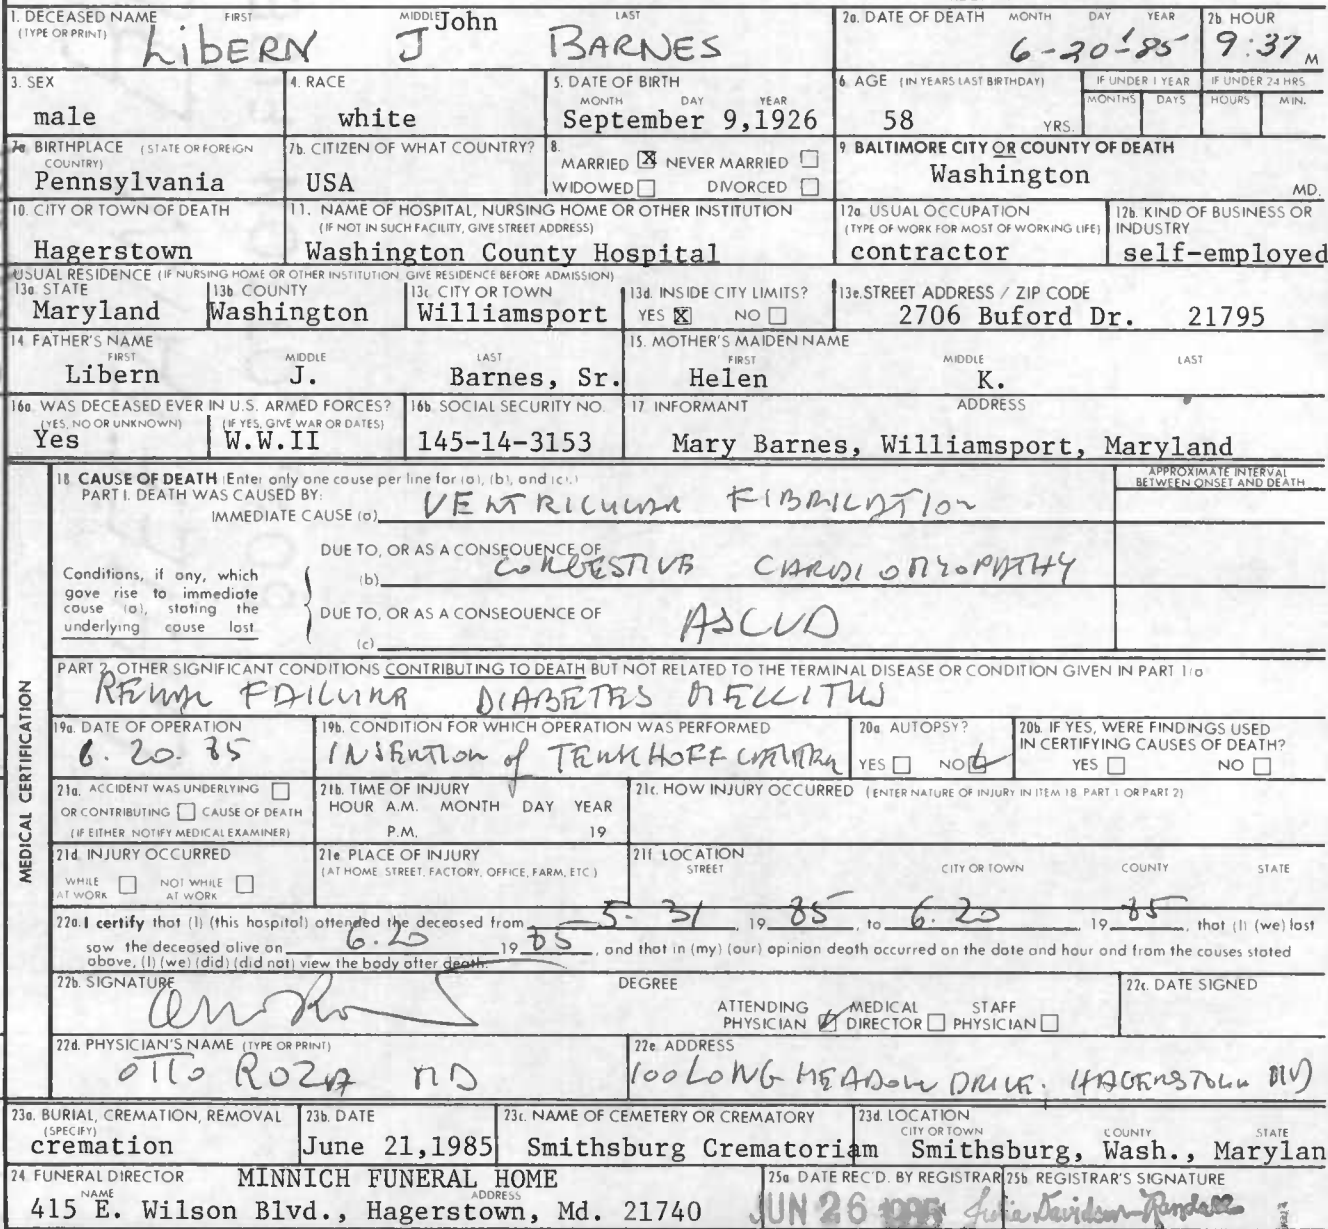 1. DECEASED NAME (TYPE OR PRINT) FIRST MIDDLE LAST
LIBERN J John BARNES
2a. DATE OF DEATH MONTH DAY YEAR
6-20-85
2b HOUR
9:37 M
3. SEX
male
4. RACE
white
5. DATE OF BIRTH
MONTH DAY YEAR
September 9,1926
6. AGE (IN YEARS LAST BIRTHDAY)
58 YRS.
IF UNDER 1 YEAR
MONTHS DAYS
IF UNDER 24 HRS
HOURS MIN.
7a BIRTHPLACE (STATE OR FOREIGN COUNTRY)
Pennsylvania
7b. CITIZEN OF WHAT COUNTRY?
USA
8.
MARRIED X NEVER MARRIED
WIDOWED DIVORCED
9 BALTIMORE CITY OR COUNTY OF DEATH
Washington MD.
10. CITY OR TOWN OF DEATH
Hagerstown
11. NAME OF HOSPITAL, NURSING HOME OR OTHER INSTITUTION
(IF NOT IN SUCH FACILITY, GIVE STREET ADDRESS)
Washington County Hospital
12a. USUAL OCCUPATION
(TYPE OF WORK FOR MOST OF WORKING LIFE)
contractor
12b. KIND OF BUSINESS OR INDUSTRY
self-employed
USUAL RESIDENCE (IF NURSING HOME OR OTHER INSTITUTION GIVE RESIDENCE BEFORE ADMISSION)
13a. STATE
Maryland
13b COUNTY
Washington
13c CITY OR TOWN
Williamsport
13d. INSIDE CITY LIMITS?
YES X NO
13e. STREET ADDRESS / ZIP CODE
2706 Buford Dr. 21795
14 FATHER'S NAME
FIRST MIDDLE LAST
Libern J. Barnes, Sr.
15. MOTHER'S MAIDEN NAME
FIRST MIDDLE LAST
Helen K.
16a WAS DECEASED EVER IN U.S. ARMED FORCES?
(YES, NO OR UNKNOWN) (IF YES, GIVE WAR OR DATES)
Yes W.W.II
16b SOCIAL SECURITY NO.
145-14-3153
17 INFORMANT ADDRESS
Mary Barnes, Williamsport, Maryland
MEDICAL CERTIFICATION
18 CAUSE OF DEATH (Enter only one cause per line for (a), (b), and (c).)
APPROXIMATE INTERVAL BETWEEN ONSET AND DEATH
PART I. DEATH WAS CAUSED BY:
IMMEDIATE CAUSE (a) VENTRICULAR FIBRILATION
DUE TO, OR AS A CONSEQUENCE OF
(b) CONGESTIVE CARDIOMYOPATHY
Conditions, if any, which
gave rise to immediate
cause (a), stating the
underlying cause last
DUE TO, OR AS A CONSEQUENCE OF
(c) ASCVD
PART 2. OTHER SIGNIFICANT CONDITIONS CONTRIBUTING TO DEATH BUT NOT RELATED TO THE TERMINAL DISEASE OR CONDITION GIVEN IN PART 1(a
RENAL FAILURE DIABETES MELLITUS
19a. DATE OF OPERATION
6. 20. 85
19b. CONDITION FOR WHICH OPERATION WAS PERFORMED
INSERTION of TENKHOFF CATHETER
20a AUTOPSY?
YES NO
20b. IF YES, WERE FINDINGS USED
IN CERTIFYING CAUSES OF DEATH?
YES NO
21a. ACCIDENT WAS UNDERLYING
OR CONTRIBUTING CAUSE OF DEATH
(IF EITHER NOTIFY MEDICAL EXAMINER)
21b. TIME OF INJURY
HOUR A.M. MONTH DAY YEAR
P.M. 19
21c. HOW INJURY OCCURRED (ENTER NATURE OF INJURY IN ITEM 18 PART 1 OR PART 2)
21d. INJURY OCCURRED
WHILE AT WORK NOT WHILE AT WORK
21e PLACE OF INJURY
(AT HOME, STREET, FACTORY, OFFICE, FARM, ETC.)
21f LOCATION
STREET CITY OR TOWN COUNTY STATE
22a. I certify that (I) (this hospital) attended the deceased from 5-31, 19 85, to 6.20 19 85, that (I) (we) last
saw the deceased alive on 6.20 19 85, and that in (my) (our) opinion death occurred on the date and hour and from the causes stated
above, (I) (we) (did) (did not) view the body after death.
22b. SIGNATURE DEGREE
ATTENDING PHYSICIAN MEDICAL DIRECTOR STAFF PHYSICIAN
22c. DATE SIGNED
22d. PHYSICIAN'S NAME (TYPE OR PRINT)
OTTO ROZA MD
22e ADDRESS
100 LONG MEADOW DRIVE. HAGERSTOWN MD
23a. BURIAL, CREMATION, REMOVAL (SPECIFY)
cremation
23b. DATE
June 21,1985
23c. NAME OF CEMETERY OR CREMATORY
Smithsburg Crematoriam
23d. LOCATION
CITY OR TOWN COUNTY STATE
Smithsburg, Wash., Marylan
24 FUNERAL DIRECTOR MINNICH FUNERAL HOME
NAME ADDRESS
415 E. Wilson Blvd., Hagerstown, Md. 21740
25a DATE REC'D. BY REGISTRAR
JUN 26 1985
25b REGISTRAR'S SIGNATURE
Julia Davidson-Randall